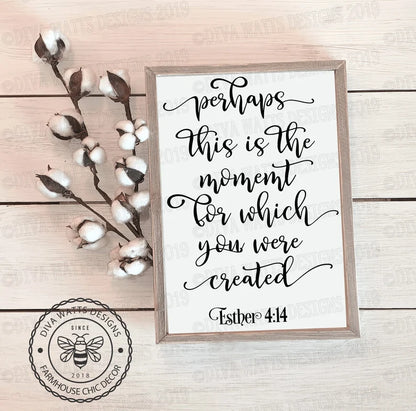 perhaps
this is the
momemt
for which
you were
created
Esther 4:14
DIVA WATTS DESIGNS
SINCE
2018
FARMHOUSE CHIC DECOR
©DIVA WATTS DESIGNS 2019